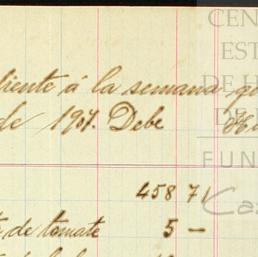 diente á la semana que
de 1907. Debe
458 71
de tomate 5 —
CEN
EST
DE H
DE
FUN
Ca